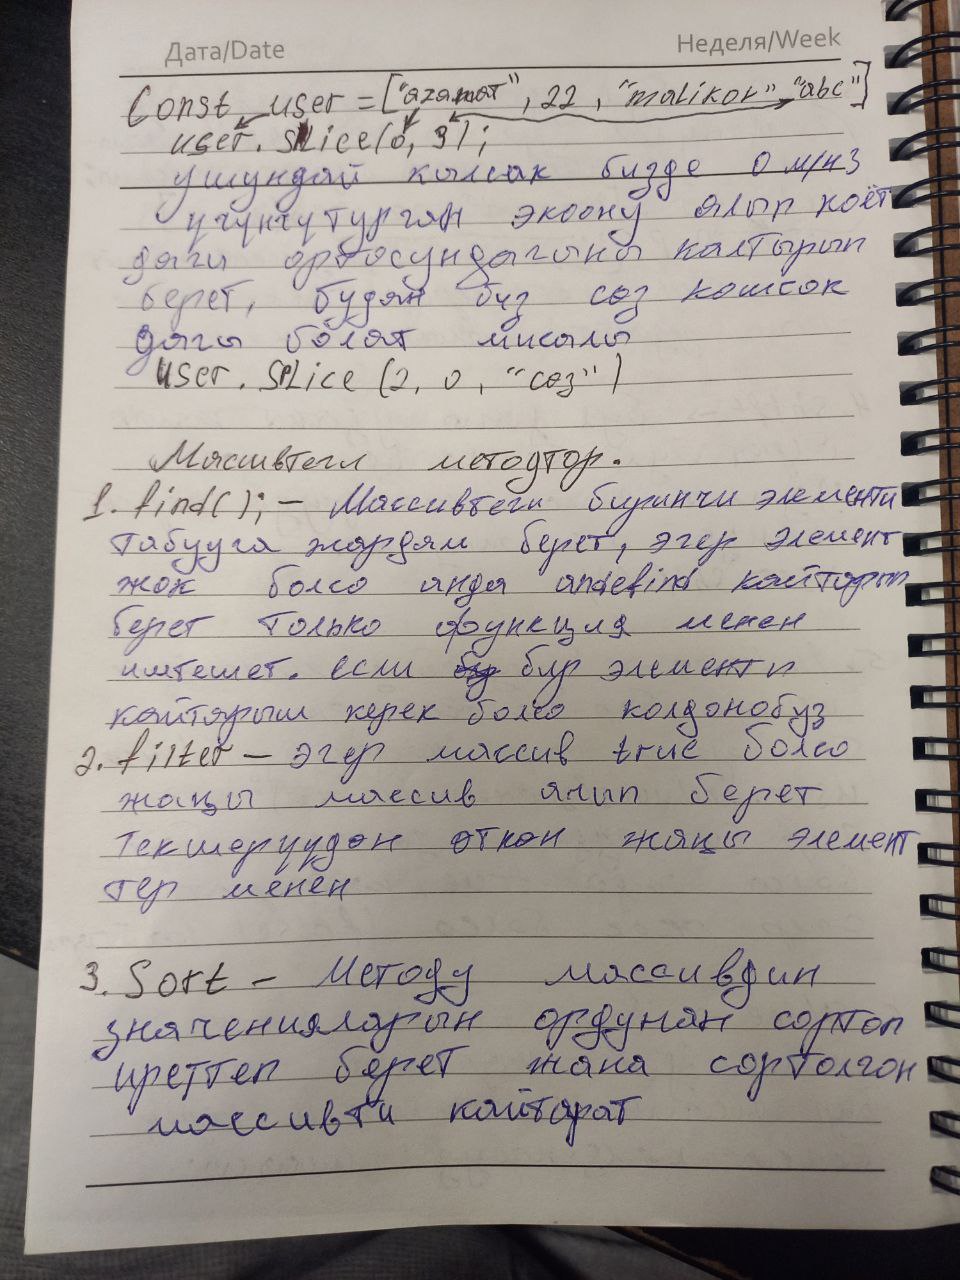 Дата/Date
Неделя/Week
Const user = ["azamat", 22, "malikov" "abc"]
user. SPlice(0, 3);
ушундай кылсак бизде 0 м/н 3
үчүнчү турган экоону алып коет
дагы ортосундагыны калтырып
берет, будан биз соз кошсок
дагы болот мисалы
user. SPLice (2, 0, "соз")
Массивтегл методтор.
1. find(); - Массивтеги биринчи элементи
табууга жардам берет, эгер элемент
жок болсо анда andefind кайтарып
берет только функция менен
иштешет. если бир элементи
кайтарыш керек болсо колдонобуз
2. filter - эгер массив true болсо
жаңы массив алып берет
Текшерүүдөн откон жаңы элемент
тер менен
3. Sort - Методу массивдин
значенияларын ордунан сортоп
иреттеп берет жана сортолгон
массивти кайтарат